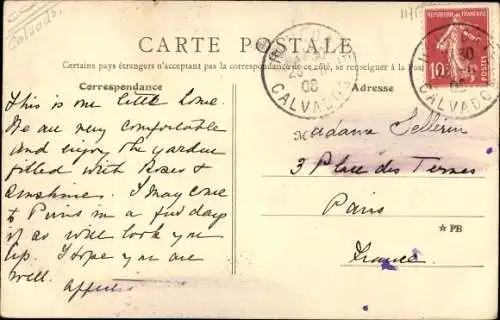 Calvados
CARTE POSTALE
Certains pays étrangers n'acceptent pas la correspondance de ce côté, se renseigner à la Pos
Correspondance
Adresse
CALVADOS
CALVADOS
RÉPUBLIQUE FRANÇAISE
10
POSTES
This is our little home.
We are very comfortable
and enjoy the garden
filled with Roses &
sunshine. I may come
to Paris in a few days
if so will look you
up. I hope you are
well.
Madame Sellerin
3 Place des Ternes
Paris
France
☆ PB